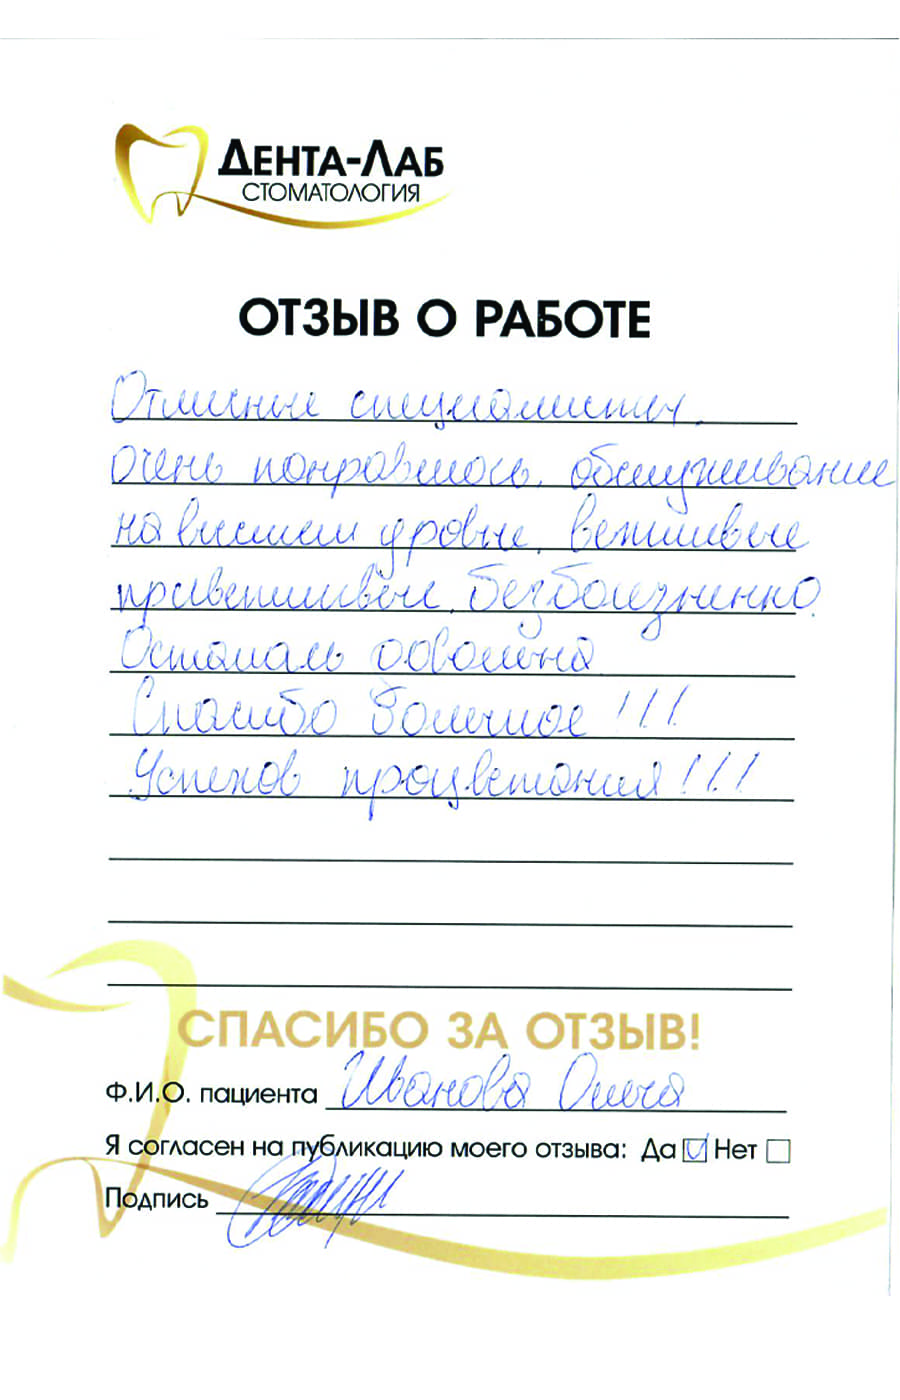 ДЕНТА-ЛАБ
СТОМАТОЛОГИЯ
ОТЗЫВ О РАБОТЕ
Отличные специалисты,
очень понравилось, обслуживание
на высшем уровне, вежливые
приветливые, безболезненно.
Осталась довольна
Спасибо Большое!!!
Успехов процветания!!!
СПАСИБО ЗА ОТЗЫВ!
Ф.И.О. пациента Иванова Ольга
Я согласен на публикацию моего отзыва: Да Нет
Подпись